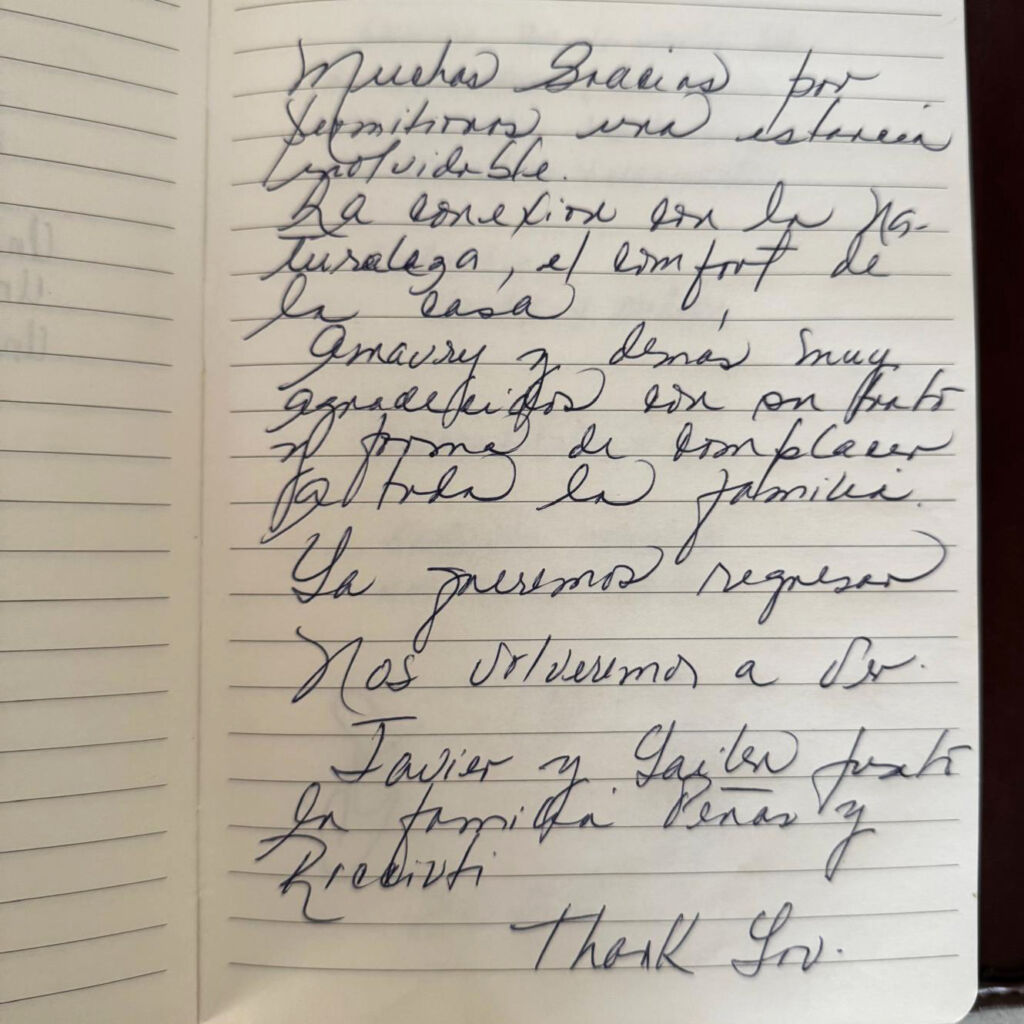 Muchas Gracias por
permitirnos una estancia
inolvidable.
La conexion con la na-
turaleza, el comfort de
la casa
Amaury y demás muy
agradecidos con su trato
y forma de complacer
a toda la familia.
Ya queremos regresar
Nos volveremos a ver.
Javier y Yailen junto
la familia Peñas y
Ricciuti
Thank You.